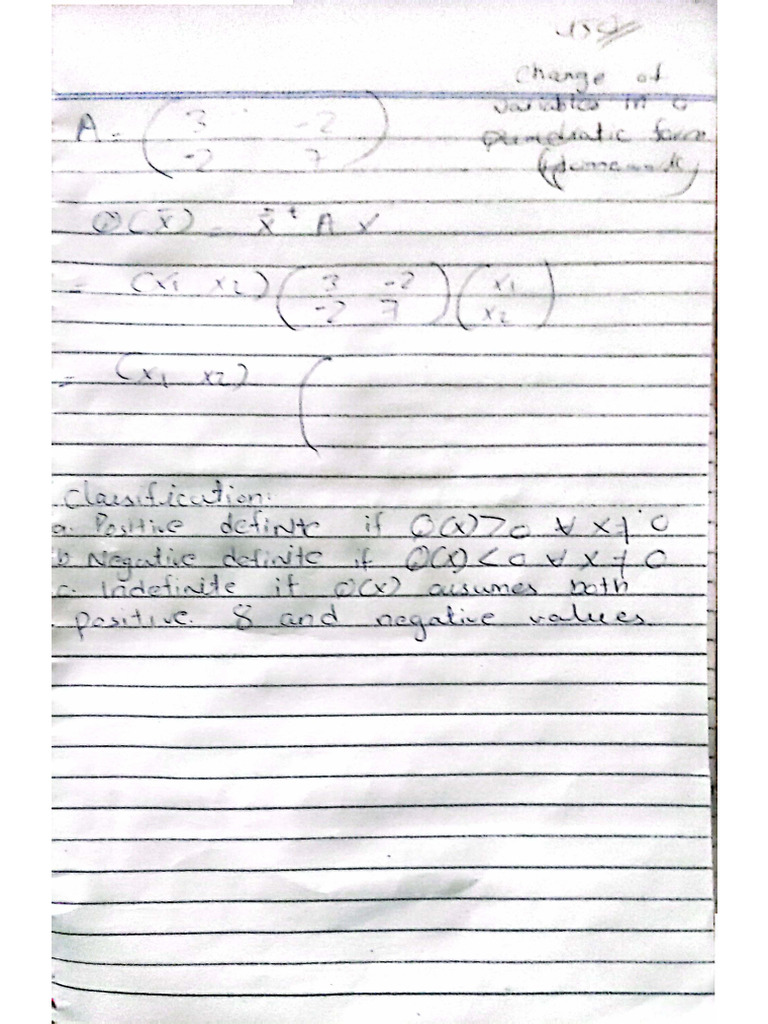 Change of
variables in a
A = ( 3 -2
-2 7 )
quadratic form
Q(x̄) = x̄ᵗ A x
= (x1 x2) ( 3 -2
-2 7 ) ( x1
x2 )
= (x1 x2) (
Classification:
a. Positive definite if Q(x)>0 ∀ x≠0
b. Negative definite if Q(x)<0 ∀ x≠0
c. Indefinite if Q(x) assumes both
positive & and negative values.